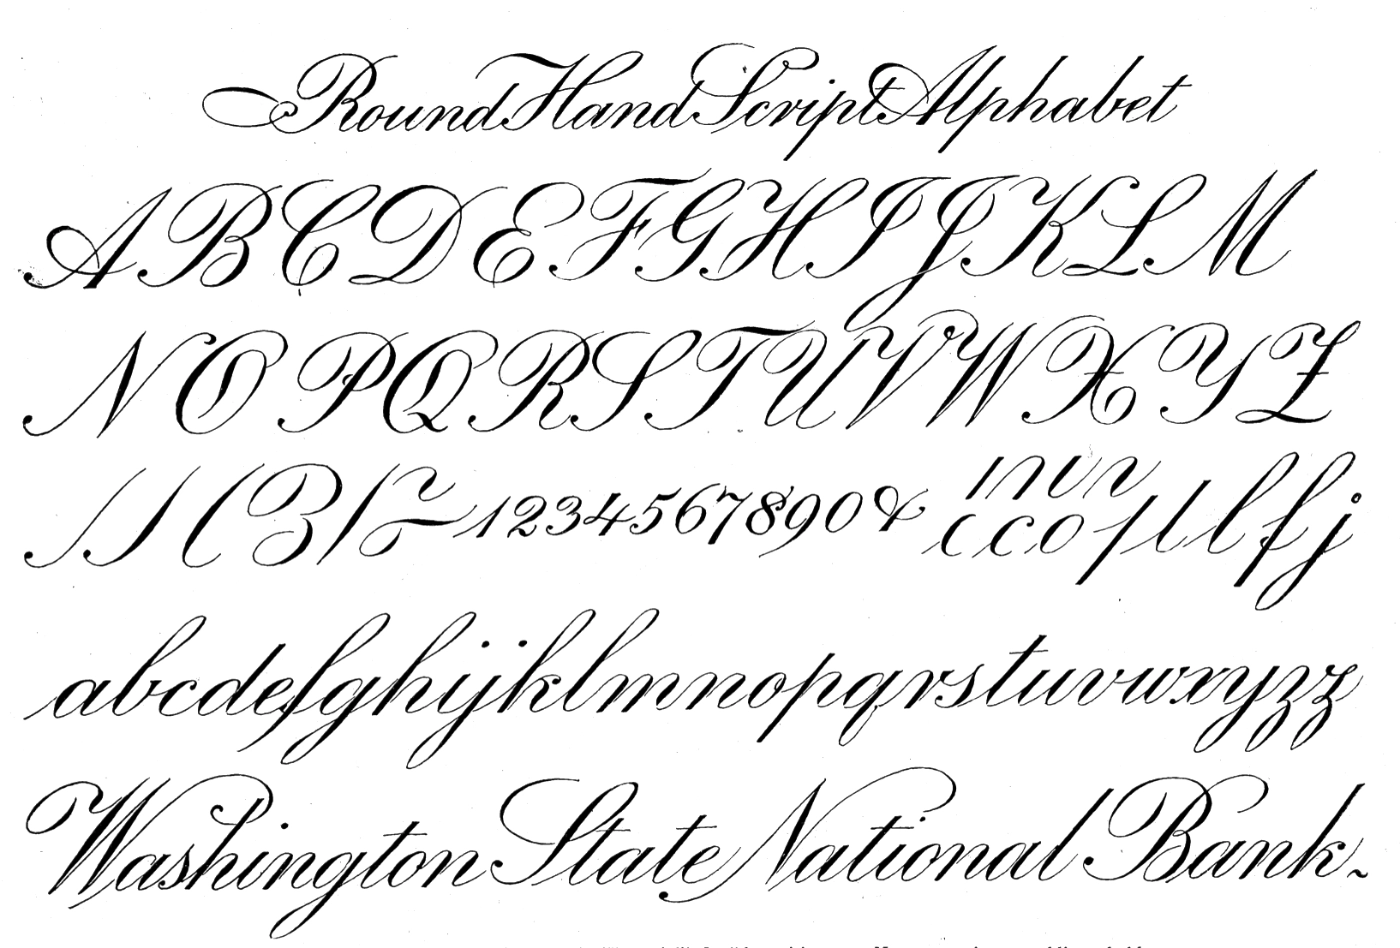 Round Hand Script Alphabet
A B C D E F G H I J K L M
N O P Q R S T U V W X Y Z
1 2 3 4 5 6 7 8 9 0 &
c c o l l f j
a b c d e f g h i j k l m n o p q r s t u v w x y z z
Washington State National Bank.